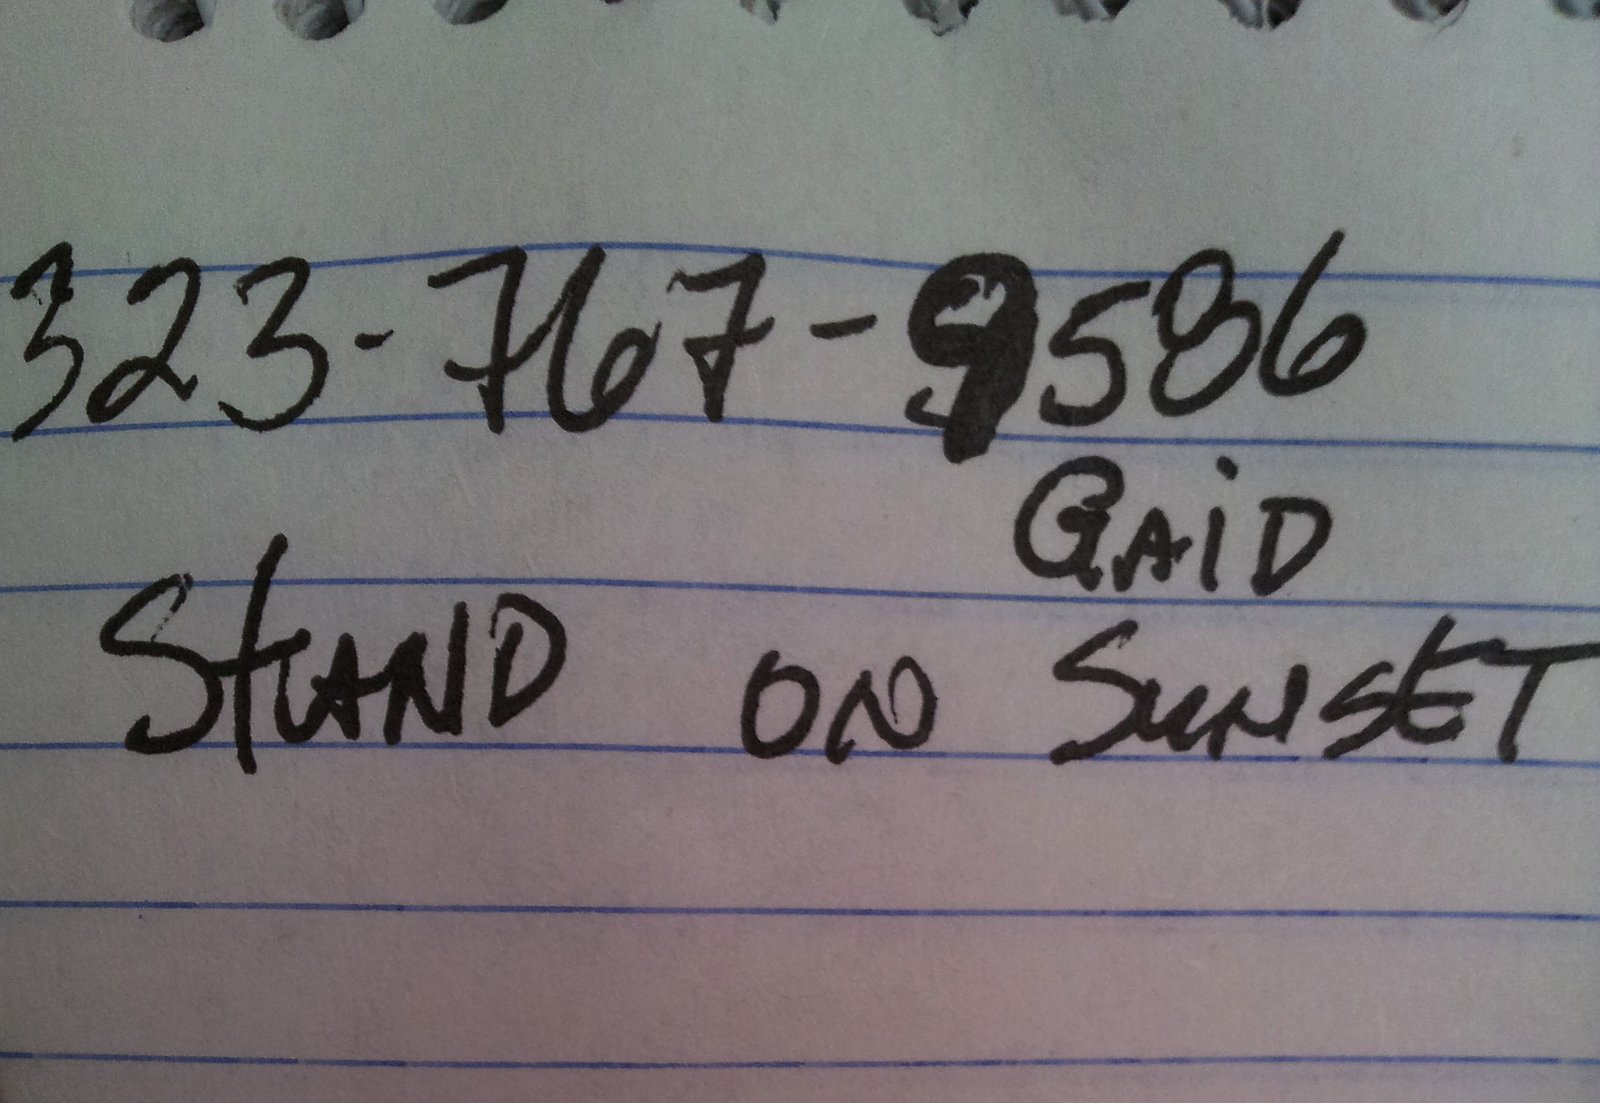 323-767-9586
GAiD
StAND ON SUNSET